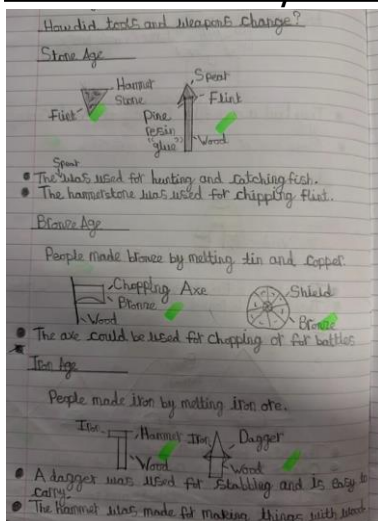 How did tools and weapons change?
Stone Age
Hammer
Stone
Flint
Spear
Flint
Pine
resin
"glue"
Wood
Spear
The was used for hunting and catching fish.
The hammerstone was used for chipping flint.
Bronze Age
People made bronze by melting tin and copper.
Chopping Axe
Bronze
Wood
Shield
Bronze
The axe could be used for chopping or for battles
Iron Age
People made iron by melting iron ore.
Iron
Hammer
Wood
Iron
Dagger
Wood
A dagger was used for stabbing and is easy to
carry.
The Hammer was made for making things with wood